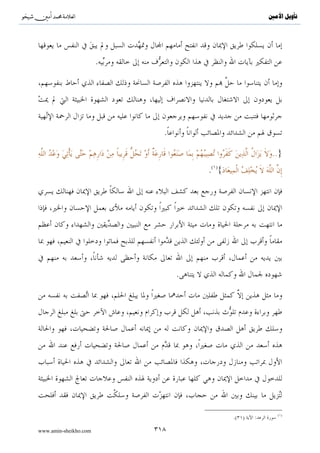 تأويل الأمين
العلامة محمد أمين شيخو
إما أن يسلكوا طريق الإيمان وقد انفتح أمامهم المجال وتمهَّدت السبل ولم يبق في النفس ما يعوقها
عن التفكير بآيات الله والنظر في هذا الكون والتعرُّف منه إلى خالقه ومربِّيه.
وإما أن يتناسوا ما حلَّ بهم ولا ينتهزوا هذه الفرصة السانحة وذلك الصفاء الذي أحاط بنفوسهم،
بل يعودون إلى الاشتغال بالدنيا والانصراف إليها، وهنالك تعود الشهوة الخبيثة التي لم يمت
جرثومها فتنبت من جديد في نفوسهم ويرجعون إلى ما كانوا عليه من قبل وما تزال الرحمة الإلهية
تسوق لهم من الشدائد والمصائب ألواناً وأنواعاً.
{...وَلاَ يَزَالُ الَّذِينَ كَفَرُوا تُصِيبُهُمْ بِمَا صَنَعُوا قَارِعَةٌ أَوْ تَحُلُّ قَرِيباً مِنْ دَارِهِمْ حَتَّى يَأْتِيَ وَعْدُ اللَّهِ
إِنَّ اللَّهَ لاَ يُخْلِفُ الْمِيعَادَ}(١).
فإن انتهز الإنسان الفرصة ورجع بعد كشف البلاء عنه إلى الله سالكاً طريق الإيمان فهنالك يسري
الإيمان إلى نفسه وتكون تلك الشدائد خيراً كبيراً وتكون أيامه ملأى بعمل الإحسان والخير، فإذا
ما انتهت به مرحلة الحياة ومات ميتة الأبرار حشر مع النبيين والصدِّيقين والشهداء وكان أعظم
مقاماً وأقرب إلى الله زلفى من أولئك الذين قدَّموا أنفسهم للذبح فماتوا ودخلوا في النعيم، فهو بما
بين يديه من أعمال، أقرب منهم إلى الله تعالى مكانة وأحظى لديه شأناً، وأسعد به منهم في
شهوده لجمال الله وكماله الذي لا يتناهى.
وما مثل هذين إلاَّ كمثل طفلين مات أحدهما صغيراً ولما يبلغ الحلم، فهو بما اتَّصفت به نفسه من
طهر وبراءة وعدم تلوُّث بذنب، أهل لكل قرب وإكرام ونعيم، وعاش الآخر حتى بلغ مبلغ الرجال
وسلك طريق أهل الصدق والإيمان وكانت له من إيمانه أعمال صالحة وتضحيات، فهو والحالة
هذه أسعد من الذي مات صغيراً، وهو بما قدَّم من أعمال صالحة وتضحيات أرفع عند الله من
الأول بمراتب ومنازل ودرجات، وهكذا فالمصائب من الله تعالى والشدائد في هذه الحياة أسباب
للدخول في مداخل الإيمان وهي كلها عبارة عن أدوية لهذه النفس وعلاجات تعالج الشهوة الخبيثة
لتُزيل ما بينك وبين الله من حجاب، فإن انتهزت الفرصة وسلكت طريق الإيمان فقد أفلحت
(١) سورة الرعد: الآية (٣١).
www.amin-sheikho.com
٣١٨